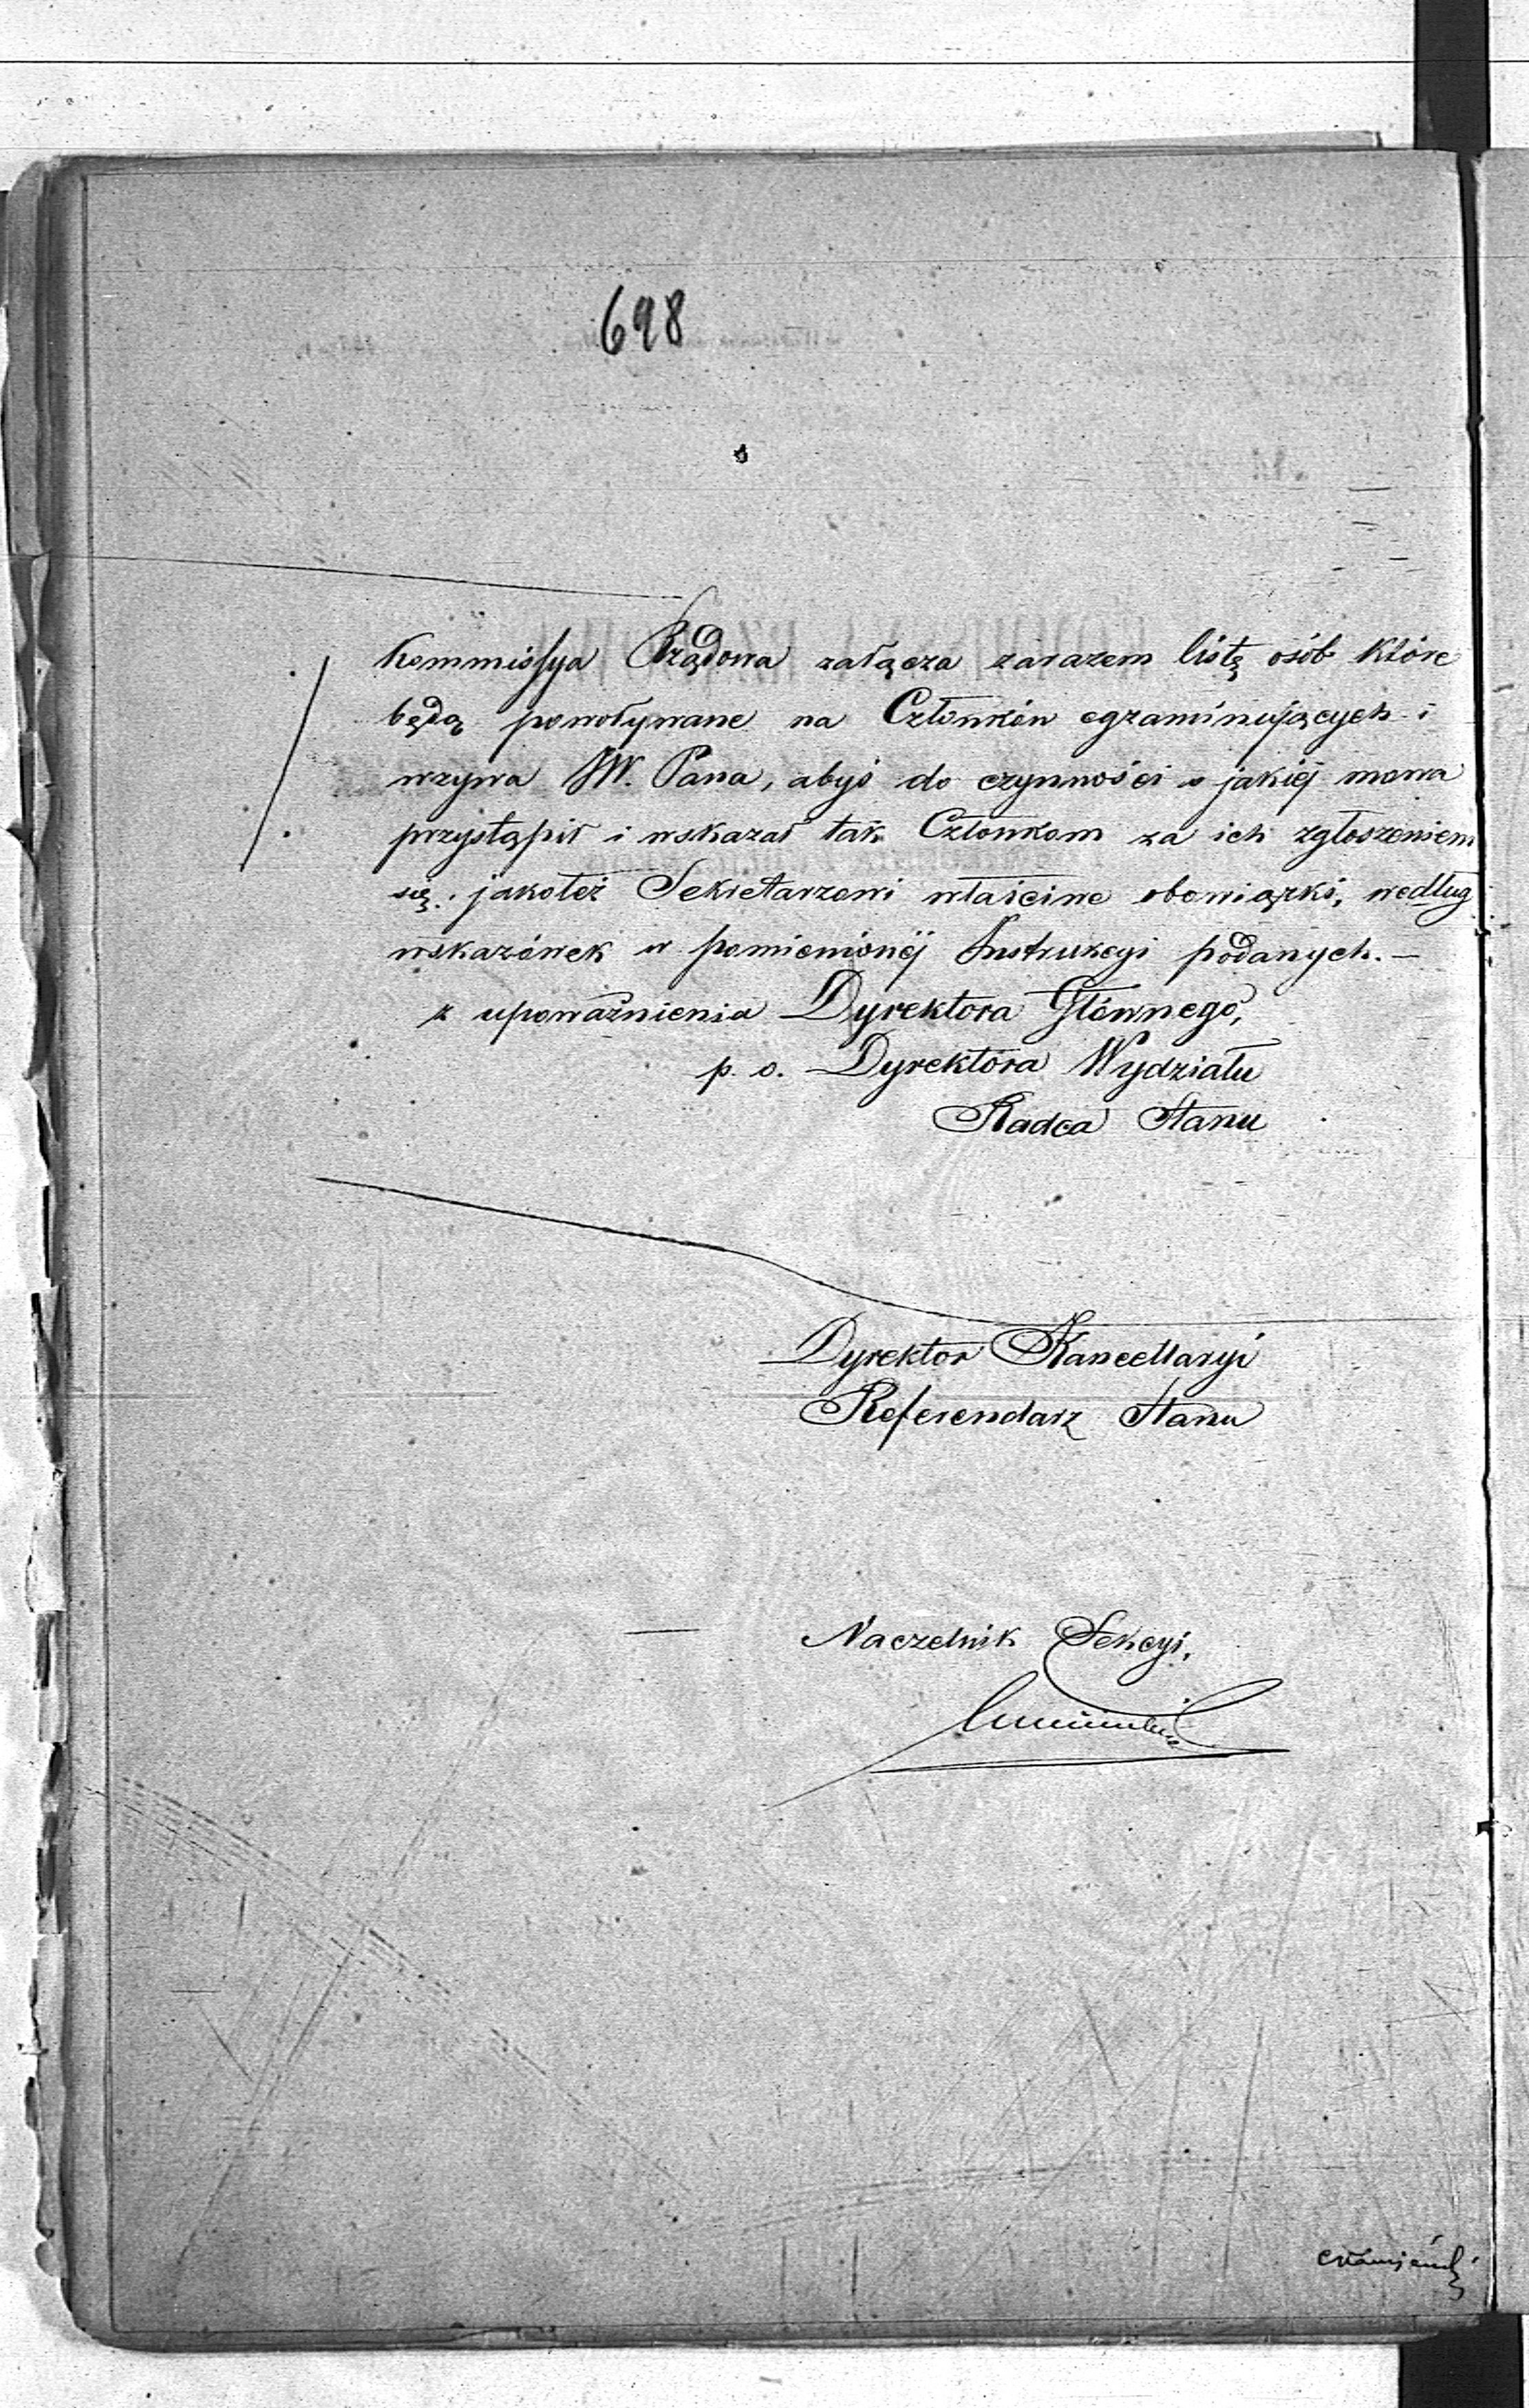 698
Kommissya Rządowa załącza zarazem listę osób które
będą powoływane na Członków egzaminujących i
wzywa JW. Pana, abyś do czynności o jakiéj mowa
przystąpił i wskazał tak Członkom za ich zgłoszeniem
się, jakoteż Sekretarzowi właściwe obowiązki, według
wskazówek w pomienionéj Instrukcyi podanych. —
z upoważnienia Dyrektora Głównego,
p. o. Dyrektora Wydziału
Radca Stanu
Dyrektor Kancellaryi
Referendarz Stanu
Naczelnik Sekcyi,